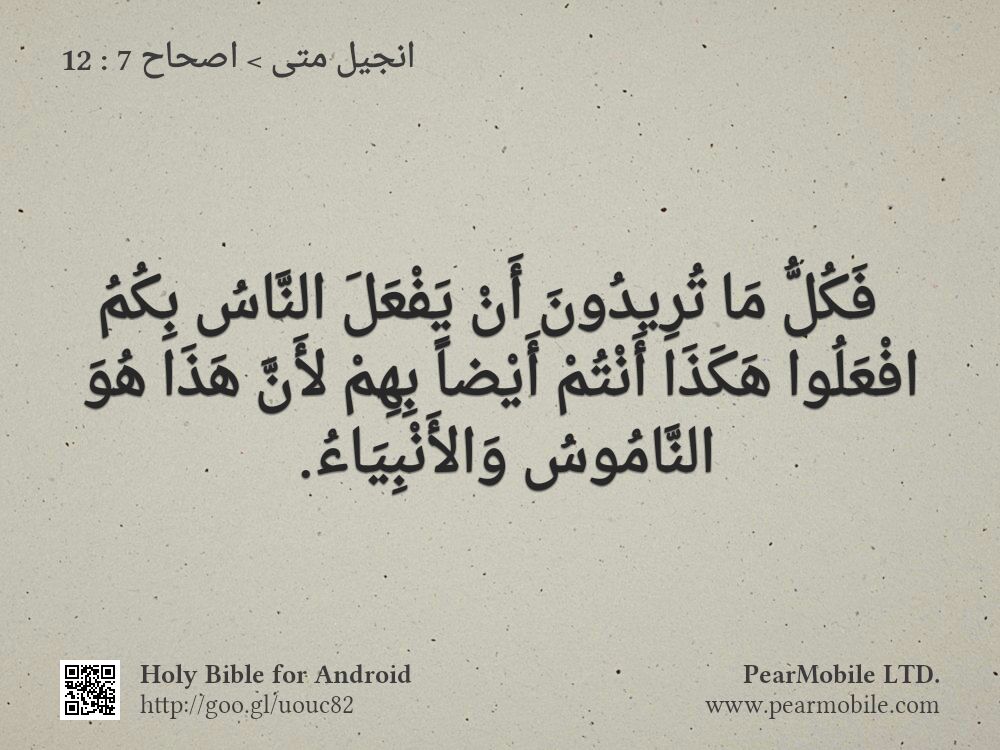 انجيل متى > اصحاح 7 : 12
فَكُلُّ مَا تُرِيدُونَ أَنْ يَفْعَلَ النَّاسُ بِكُمُ
افْعَلُوا هَكَذَا أَنْتُمْ أَيْضاً بِهِمْ لأَنَّ هَذَا هُوَ
النَّامُوسُ وَالأَنْبِيَاءُ.
Holy Bible for Android
http://goo.gl/uouc82
PearMobile LTD.
www.pearmobile.com